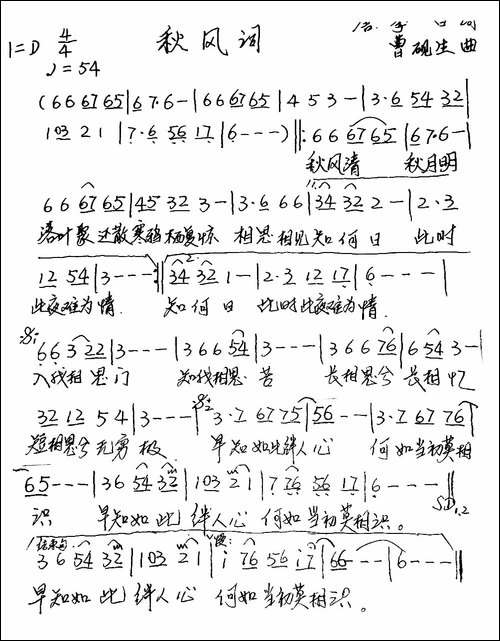 1=D 4/4 秋风词 唐 李白 词
♩=54 曹砚生 曲
(6 6 67 65 | 6 7·6 - | 6 6 67 65 | 4 5 3 - | 3·6 54 32 |
103 2 1 | 7·6 56 17 | 6 - - - ) ||: 6 6 67 65 | 6 7·6 - |
秋风清 秋月明
6 6 67 65 | 45 32 3 - | 3·6 6 6 | 34 32 2 - | 2·3
落叶聚还散寒鸦栖复惊 相思相见知何日 此时
12 54 | 3 - - - :|| 34 32 1 - | 2·3 12 17 | 6 - - - |
此夜难为情 知何日 此时此夜难为情
6 6 3 22 | 3 - - - | 3 6 6 54 | 3 - - - | 3 6 6 76 | 6 54 3 - |
入我相思门 知我相思苦 长相思兮长相忆
32 12 5 4 | 3 - - - | 3·7 67 75 | 56 - - | 3·7 67 76 |
短相思兮无穷极 早知如此绊人心 何如当初莫相
65 - - - | 36 54 32 | 103 2 1 | 7 76 56 17 | 6 - - - ||
识 早知如此绊人心 何如当初莫相识。
结束句:
3 6 54 32 | 103 2 1 | i 76 56 i7 | 66 - - | 6 - - - ||
早知如此绊人心 何如当初莫相识。